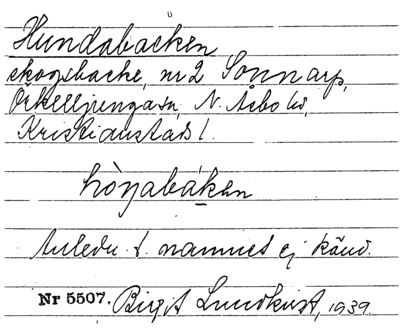 Hundabacken
skogsbacke, nr 2 Sonnarp,
Örkelljunga sn, N. Åsbo hd,
Kristianstads l.
hòŋabákan
Anledn. t. namnet ej känd.
Nr 5507. Birgit Lundkvist, 1939.